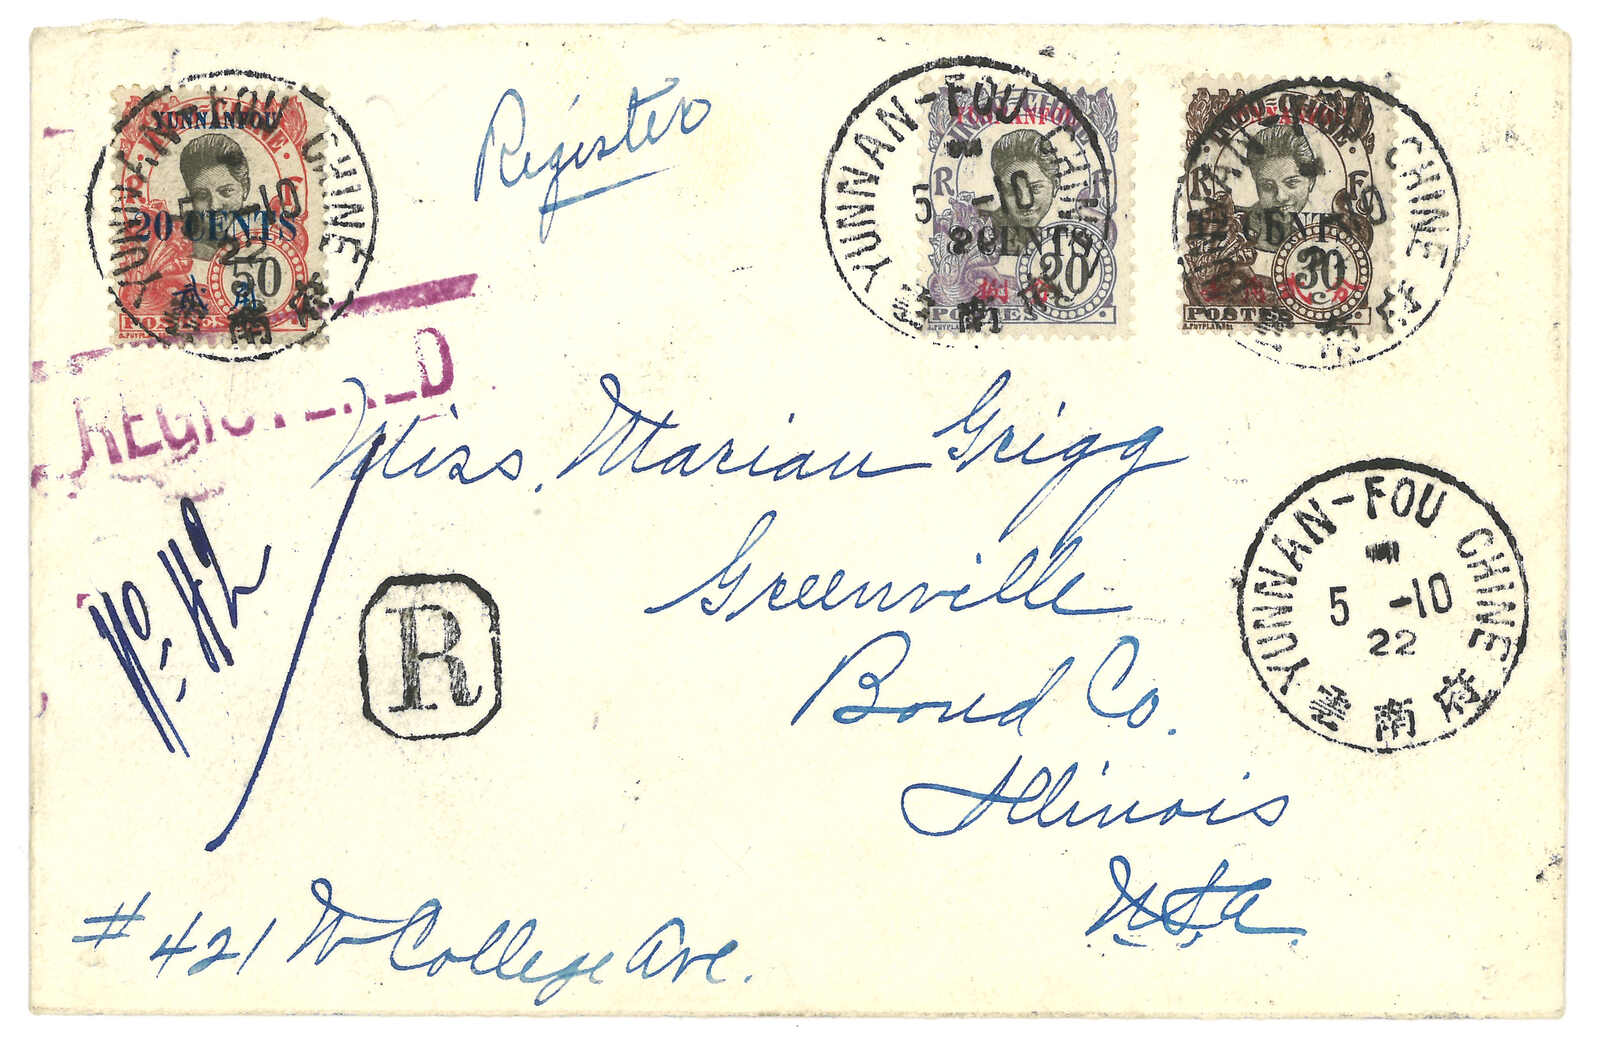 YUNNAN-FOU CHINE
22
-10
南 府
YUNNANFOU
20 CENTS
50
貳 角
POSTES
Register
YUNNAN-FOU CHINE
5 -10
南
YUNNANFOU
R F
8 CENTS
20
POSTES
CHINE
R F
12 CENTS
30
POSTES
REGISTERED
Miss, Marian Grigg
Greenville
Bond Co.
Illinois
U.S.A.
No- 42
R
YUNNAN-FOU CHINE
5 -10
22
雲 南 府
# 421 W College Ave.